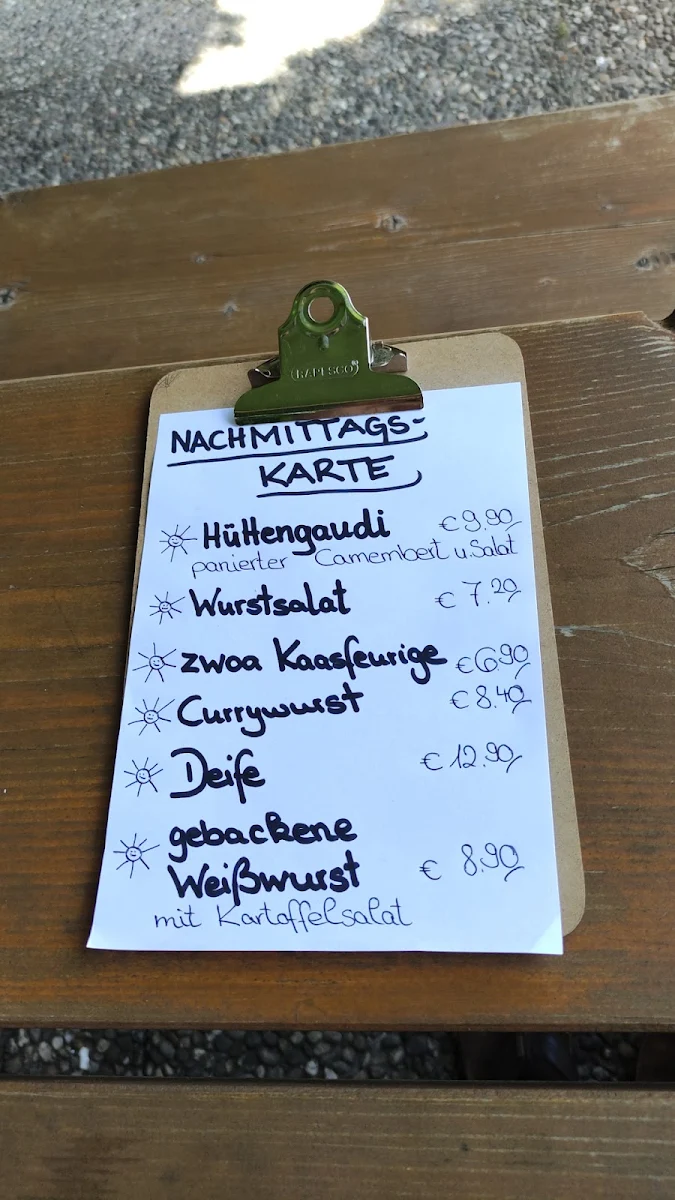 RAPESCO®
NACHMITTAGS-
KARTE
Hüttengaudi € 9.90
panierter Camembert u. Salat
Wurstsalat € 7.20
zwoa Kaasfeurige € 6.90
Currywurst € 8.40
Deife € 12.90
gebackene
Weißwurst € 8.90
mit Kartoffelsalat